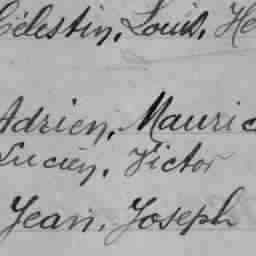 Célestin, Louis, He
Adrien, Mauric
Lucien, Victor
Jean, Joseph